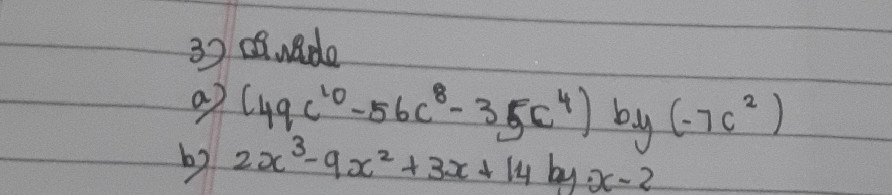 3) Divide
a) (49c¹⁰ - 56c⁸ - 35c⁴) by (-7c²)
b) 2x³ - 9x² + 3x + 14 by x - 2